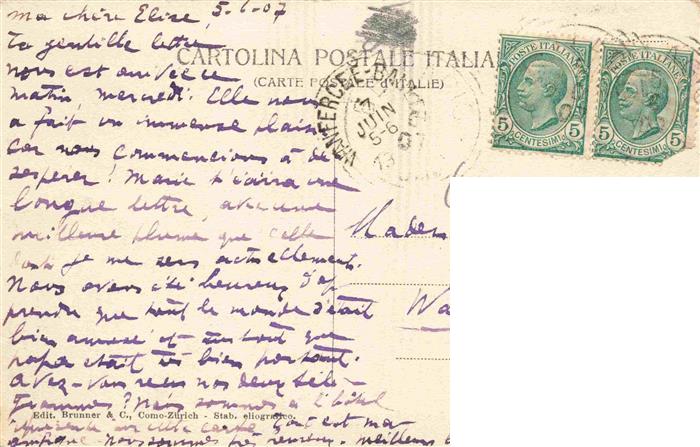 ma chère Elise, 5-6-07
Ta gentille lettre
nous est arrivée ce
matin, mercredi. Elle nous
a fait un immense plaisir
car nous commencions à dé-
sesperer! Marie t'écrira une
longue lettre, avec une
meilleure plume que celle
dont je me sers actuellement.
Nous avons été heureux d'ap
prendre que tout le monde s'était
bien amusé et surtout que
papa était si bien portant.
Avez-vous reçu nos deux télé-
grammes? Nous sommes à l'hôtel
cette carte. Tout est ma
gnifique. Nous sommes très heureux. Meilleurs
CARTOLINA POSTALE ITALIANA
(CARTE POSTALE D'ITALIE)
WANFERCÉE-BAULET
JUIN
5-6
07
13
POSTE ITALIANE
5 CENTESIMI 5
POSTE ITALIANE
5 CENTESIMI 5
Madem
Wa
Edit. Brunner & C., Como-Zürich - Stab. eliografico.